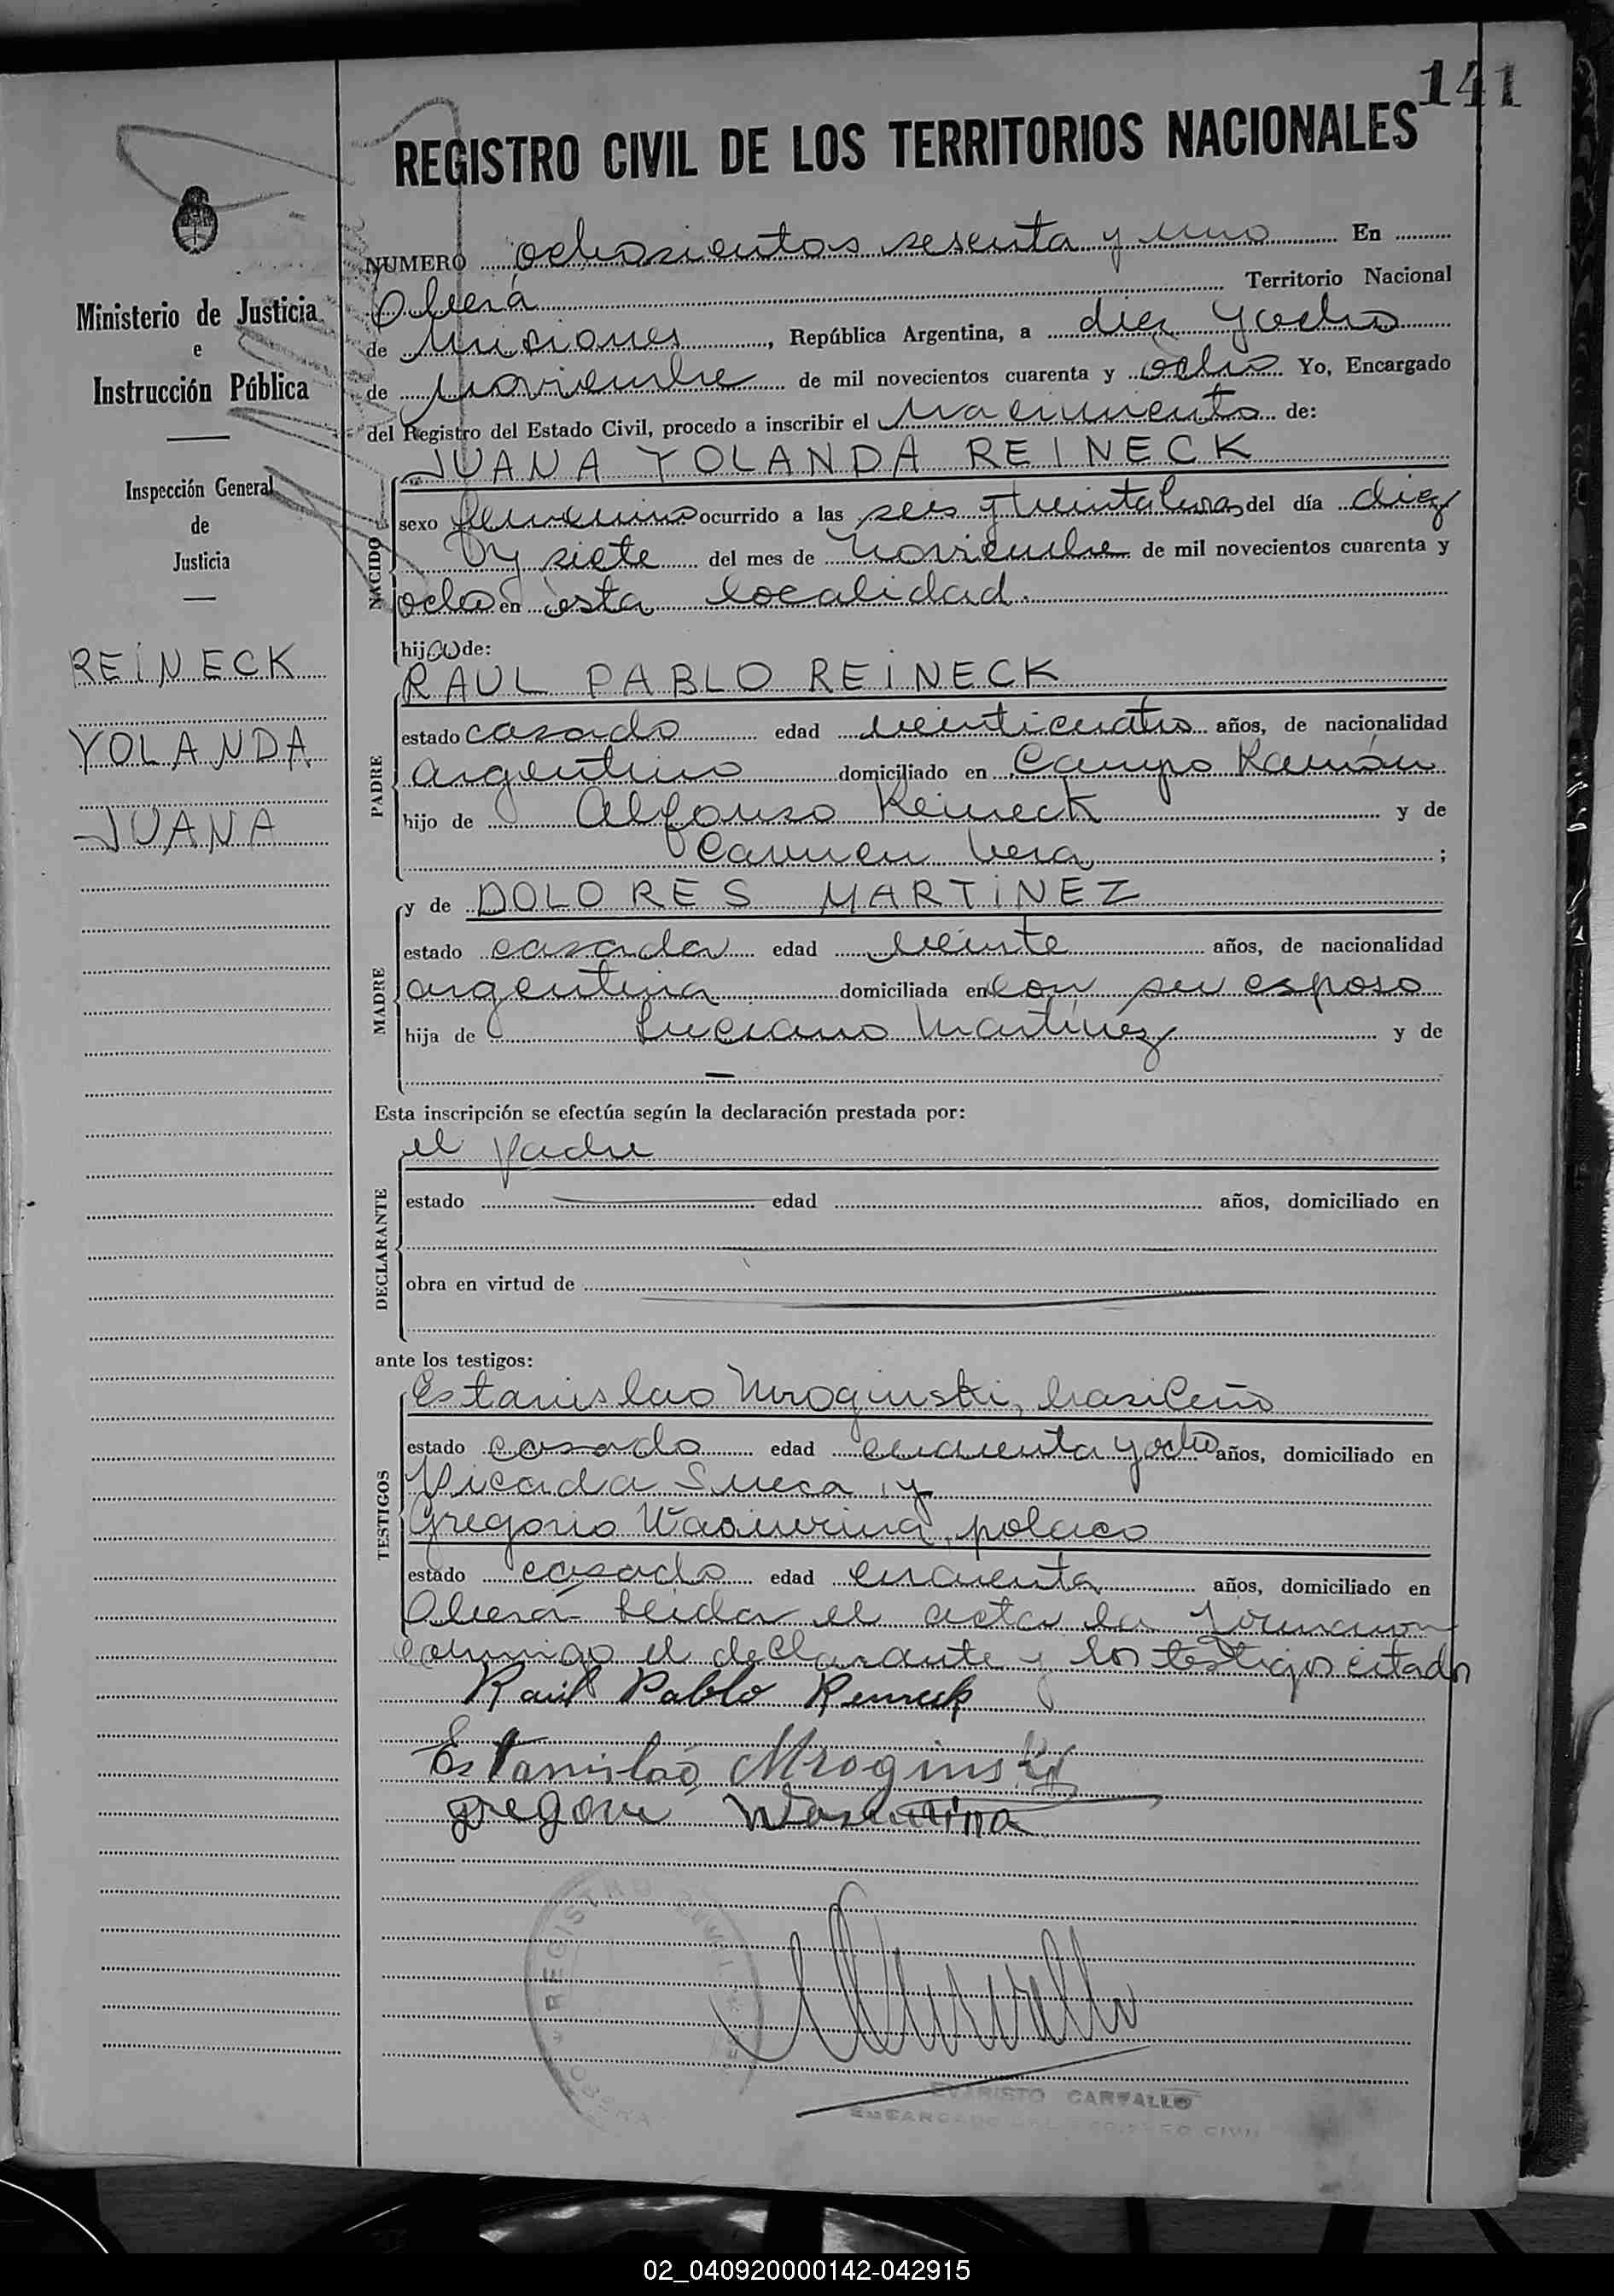 141
REGISTRO CIVIL DE LOS TERRITORIOS NACIONALES
Ministerio de Justicia
e
Instrucción Pública
Inspección General
de
Justicia
REINECK
YOLANDA
JUANA
NUMERO ochosientos sesenta y uno En
Oberá Territorio Nacional
de Misiones, República Argentina, a diez y ocho
de noviembre de mil novecientos cuarenta y ocho Yo, Encargado
del Registro del Estado Civil, procedo a inscribir el nacimiento de:
JUANA YOLANDA REINECK
NACIDO
sexo femenino ocurrido a las seis y treinta horas del día diez
y siete del mes de noviembre de mil novecientos cuarenta y
ocho en esta localidad.
hija de:
RAUL PABLO REINECK
PADRE
estado casado edad veinticuatro años, de nacionalidad
argentino domiciliado en Campo Ramón
hijo de Alfonso Reineck y de
Carmen Vera;
MADRE
y de DOLORES MARTINEZ
estado casada edad veinte años, de nacionalidad
argentina domiciliada en con su esposo
hija de Luciano Martínez y de
—
Esta inscripción se efectúa según la declaración prestada por:
el padre
DECLARANTE
estado edad años, domiciliado en
obra en virtud de
ante los testigos:
TESTIGOS
Estanislao Mroginski, brasileño
estado casado edad cuarenta y ocho años, domiciliado en
Picada Sueca y
Gregorio polaco
estado casado edad cincuenta años, domiciliado en
Oberá - Leida el acta la firmaron
conmigo el declarante y los testigos citados
Raúl Pablo Reineck
Estanislao Mroginski
REGISTRO CIVIL
EVARISTO CARVALLO
ENCARGADO DEL REGISTRO CIVIL
02_040920000142-042915